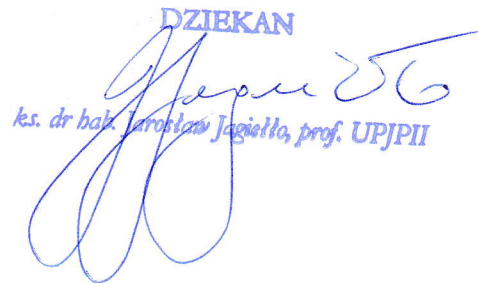 DZIEKAN
ks. dr hab. Jarosław Jagiełło, prof. UPJPII